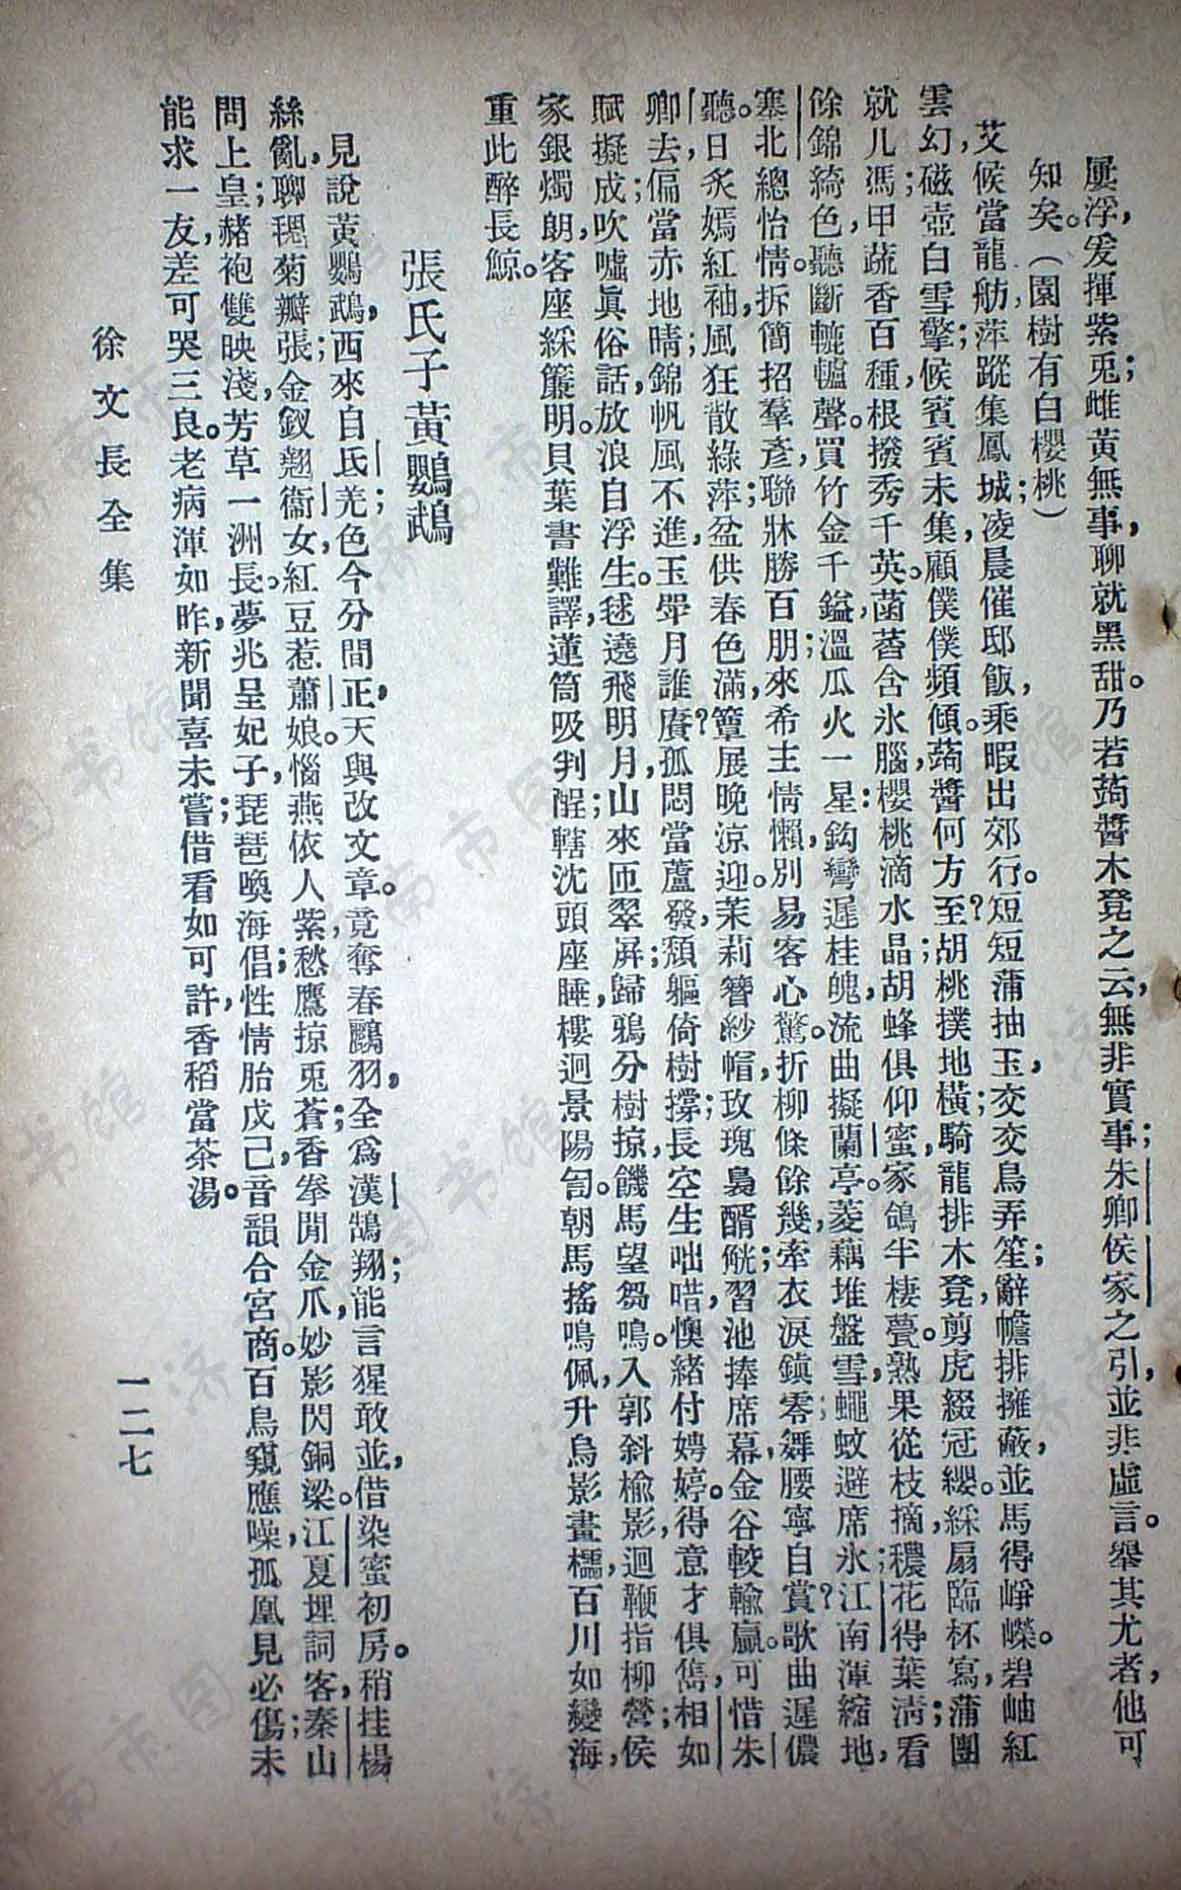 屢浮，发揮紫兎；雌黃無事，聊就黑甜。乃若蒟醬木凳之云，無非實事；朱卿侯家之引，並非虛言。舉其尤者，他可
知矣。（園樹有白櫻桃）
艾候當龍舫，萍蹤集鳳城；凌晨催邸飯，乘暇出郊行。短短蒲抽玉，交交鳥弄笙；辭幨排擁蔽，並馬得崢嶸。碧岫紅
雲幻，磁壺白雪擎；候賓賓未集，顧僕僕頻傾。蒟醬何方至？胡桃撲地橫，騎龍排木凳，剪虎綴冠纓。綵扇臨杯寫，蒲團
就几馮；甲蔬香百種，根撥秀千英。菡萏含氷腦，櫻桃滴水晶；胡蜂俱仰蜜，家鴿半棲甍。熟果從枝摘，穠花得葉淸；看
餘錦綺色，聽斷轆轤聲。買竹金千鎰，溫瓜火一星：鈎彎遲桂魄，流曲擬蘭亭。菱藕堆盤雪，蠅蚊避席氷；江南渾縮地，
塞北總怡情。拆簡招羣彥，聯牀勝百朋；來希主情懶，別易客心驚。折柳條餘幾，牽衣淚鎭零；舞腰寧白賞？歌曲遲儂
聽。日炙嫣紅袖，風狂散綠萍；盆供春色滿，簟展晚涼迎。茉莉簪紗帽，玫瑰裊醑觥；習池捧席幕，金谷較輸贏。可惜朱
卿去，偏當赤地晴；錦帆風不進，玉斝月誰賡？孤悶當蘆發，頹軀倚樹撐；長空生咄唶，懊緒付娉婷。得意才俱雋，相如
賦擬成；吹噓眞俗話，放浪自浮生。毬遶飛明月，山來匝翠屛；歸鴉分樹掠，饑馬望芻鳴。入郭斜楡影，迴鞭指柳營；侯
家銀燭朗，客座綵簾明。貝葉書難譯，蓮筒吸判酲；轄沈頭座睡，樓迥景陽訇。朝馬搖鳴佩，升烏影畫櫺，百川如變海，
重此醉長鯨。
張氏子黃鸚鵡
見說黃鸚鵡，西來自氐羌；色今分間正，天與改文章。竟奪春鸝羽，全爲漢鵠翔；能言猩敢並，借染蜜初房。稍挂楊
絲亂，聊移菊瓣張；金釵翹衞女，紅豆惹蕭娘。惱燕依人紫，愁鷹掠兎蒼；香拳閒金爪，妙影閃銅梁。江夏埋詞客，秦山
問上皇；赭袍雙映淺，芳草一洲長。夢兆呈妃子，琵琶喚海倡；性情胎戊己，音韻合宮商。百鳥窺應噪，孤凰見必傷；未
能求一友，差可哭三良。老病渾如昨，新聞喜未嘗；借看如可許，香稻當茶湯。
徐文長全集
一二七